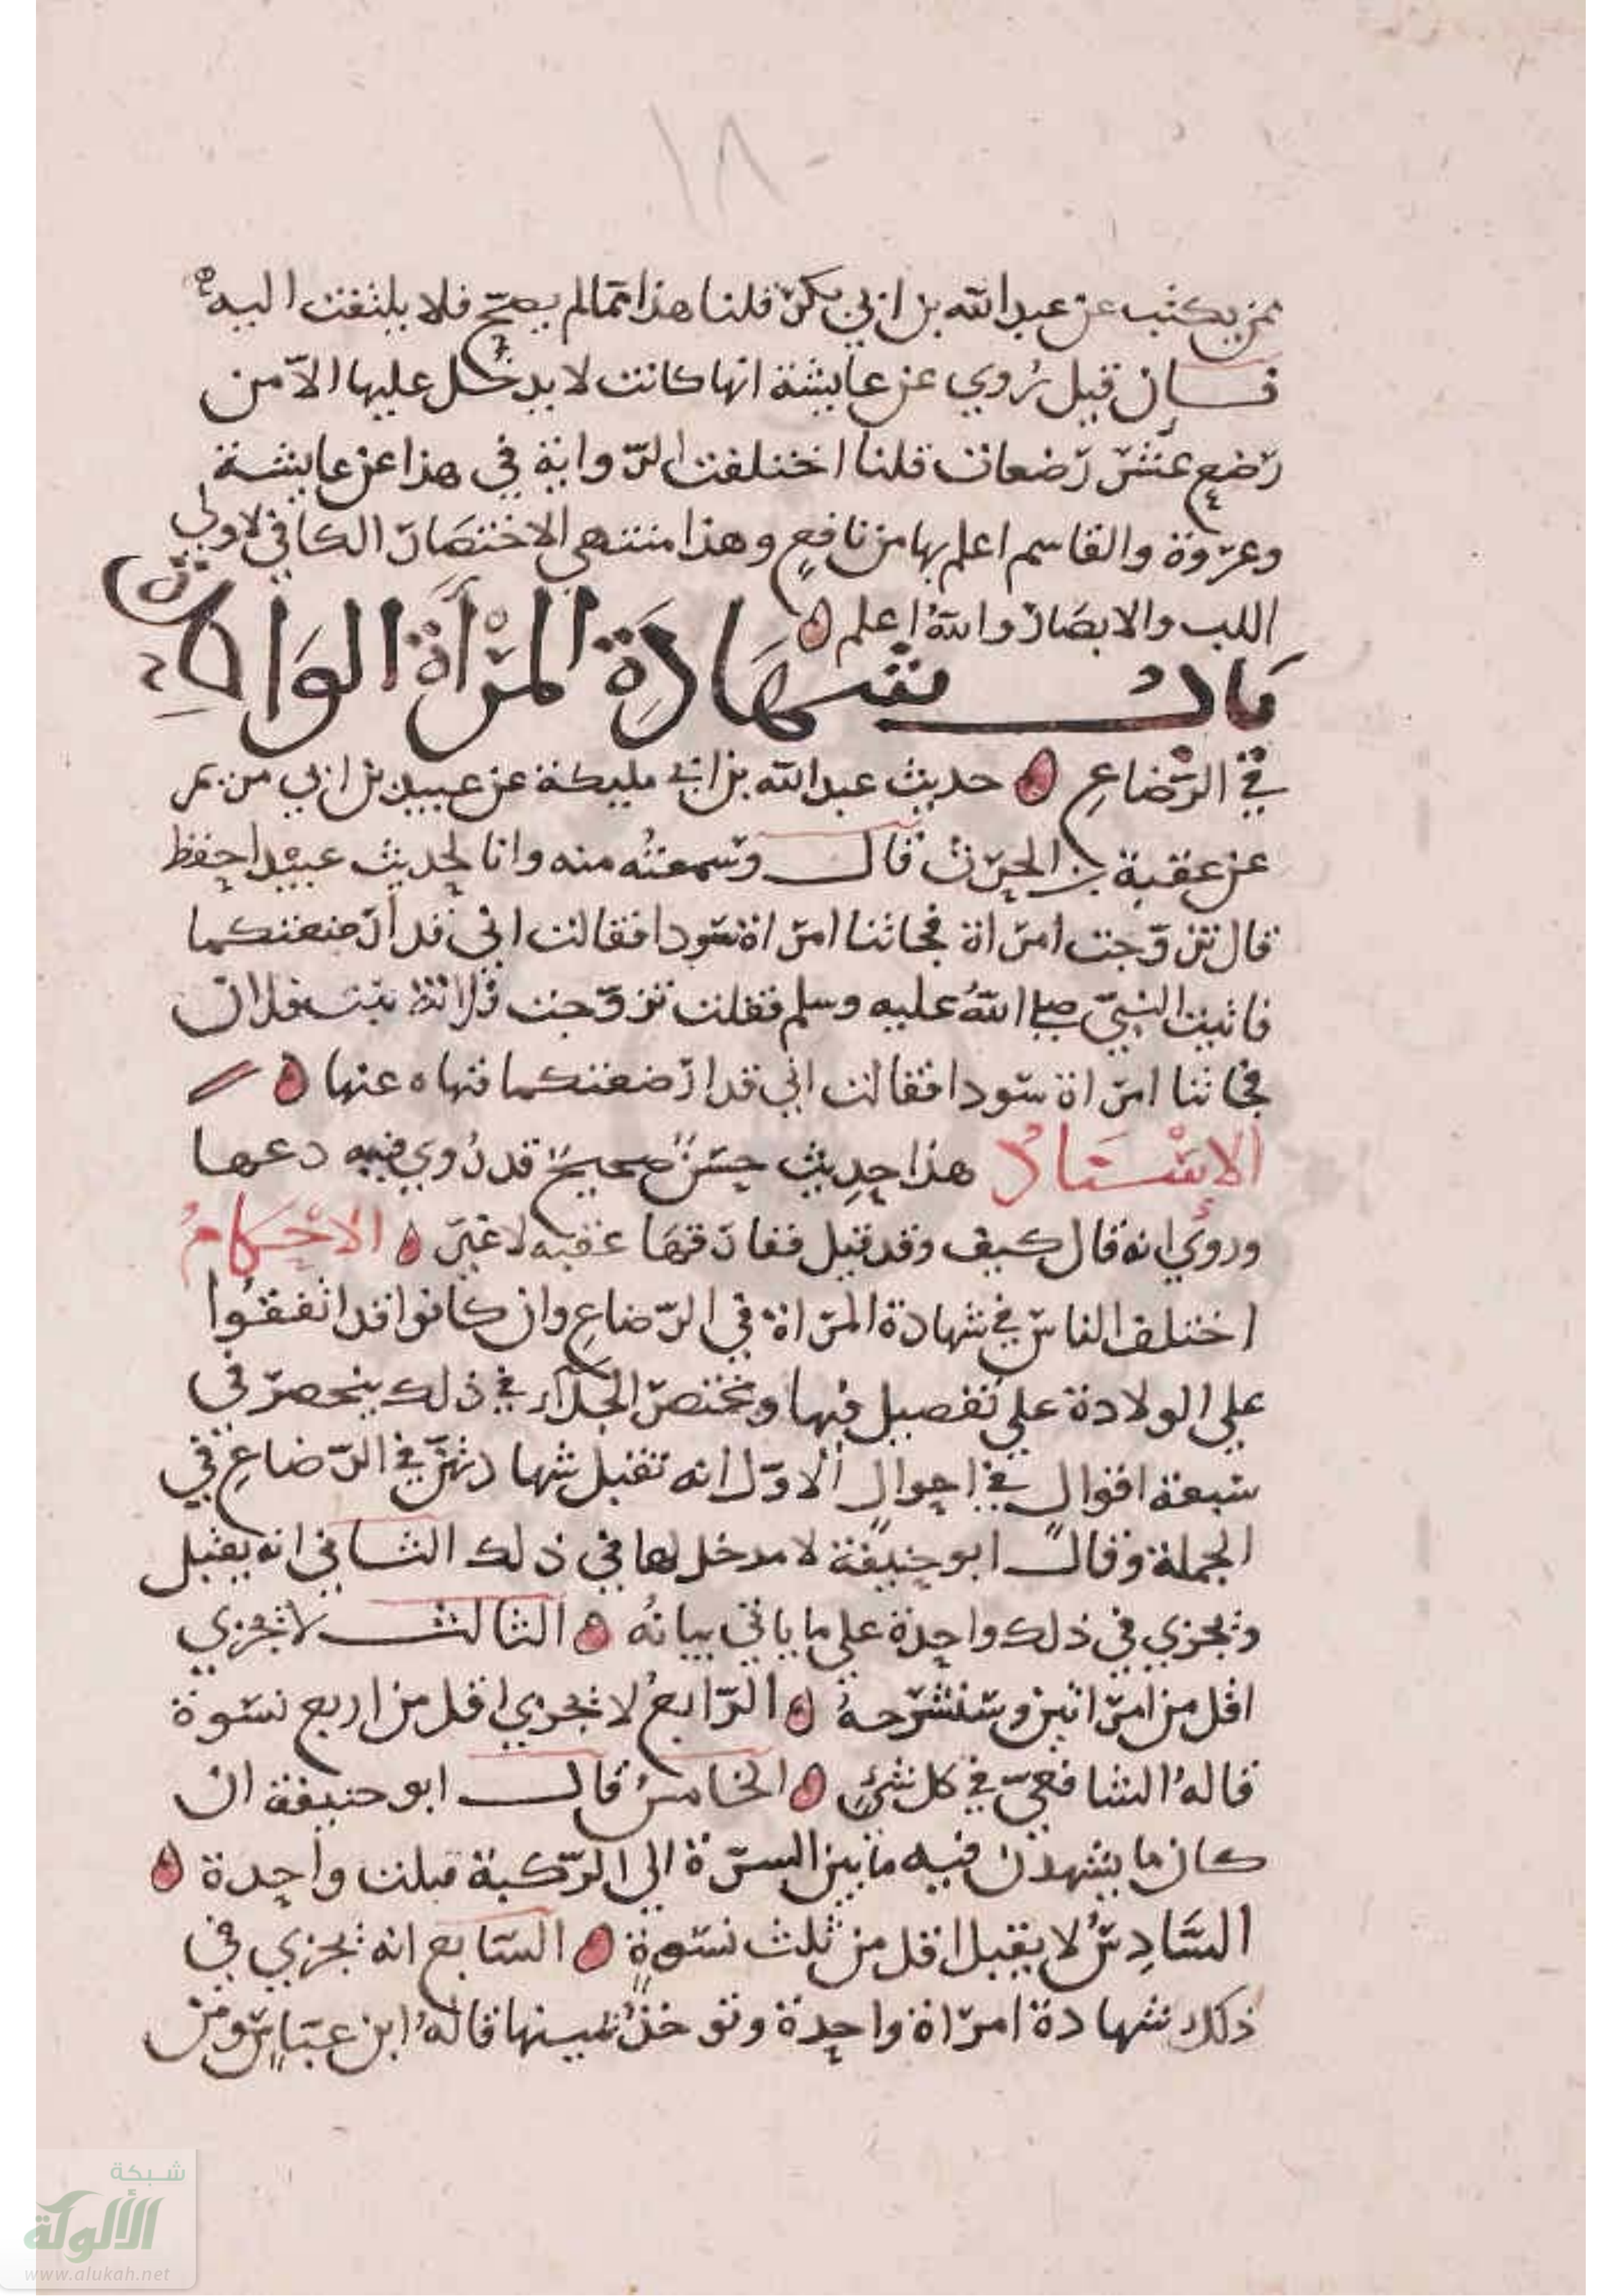 ١٨٠
ممن يكتب عن عبد الله بن ابي بكر قلنا هذا مما لم يصح فلا يلتفت اليه
فان قيل روي عن عايشة انها كانت لا يدخل عليها الا من
رضع عشر رضعات قلنا اختلفت الرواية في هذا عن عايشة
وعروة والقاسم اعلم بها من نافع وهذا منتهي الاختصار الكافي لاولي
اللب والابصار والله اعلم
باب شهادة المرأة الواحدة
في الرضاع حديث عبد الله بن ابي مليكة عن عبيد بن ابي مريم
عن عقبة بن الحرث قال وسمعته منه وانا لحديث عبيد احفظ
قال تزوجت امراة فجاتنا امراة سودا فقالت اني قد ارضعتكما
فاتيت النبي صلي الله عليه وسلم فقلت تزوجت فلانة بنت فلان
فجاتنا امراة سودا فقالت اني قد ارضعتكما فنهاه عنها
الإسناد هذا حديث حسن صحيح قد روي فيه دعها
وروي انه قال كيف وقد قيل ففارقها عقبه لا غير الاحكام
اختلف الناس في شهادة المراة في الرضاع وان كانوا قد اتفقوا
علي الولادة علي تفصيل فيها ومختصر الجلاء في ذلك ينحصر في
سبعة اقوال في احوال الاول انه تقبل شهادتهن في الرضاع في
الجملة وقال ابو حنيفة لا مدخل لها في ذلك الثاني انه يقبل
وتجزي في ذلك واحدة علي ما ياتي بيانه الثالث لا تجزي
اقل من امراتين وسنشرحه الرابع لا تجزي اقل من اربع نسوة
قاله الشافعي في كل شي الخامس قال ابو حنيفة ان
كان ما يشهدن فيه ما بين السرة الي الركبة قبلت واحدة
السادس لا يقبل اقل من ثلث نسوة السابع انه تجزي في
ذلك شهادة امراة واحدة وتوخذ يمينها قاله ابن عباس ومن
شبكة
الألوكة
www.alukah.net